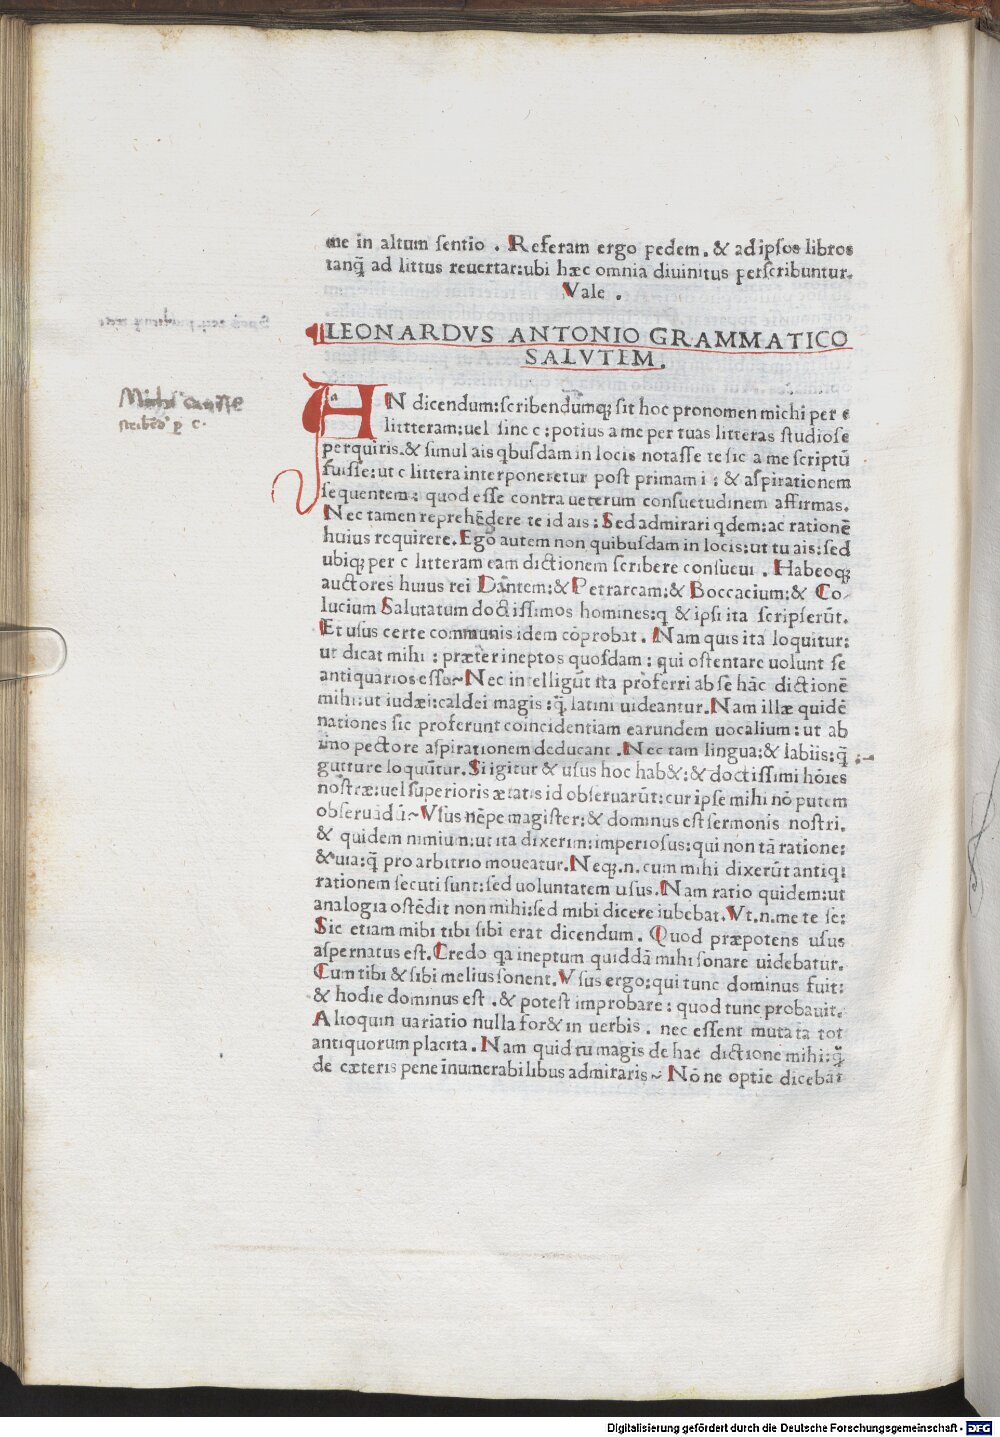 me in altum sentio . Referam ergo pedem . & ad ipsos libros
tanq̃ ad littus reuertar: ubi hæc omnia diuinitus perscribuntur.
Vale .
LEONARDVS ANTONIO GRAMMATICO
SALVTEM .
AN dicendum: scribendumq; sit hoc pronomen michi per c
litteram: uel sine c: potius a me per tuas litteras studiose
perquiris. & simul ais qbusdam in locis notasse te sic a me scriptū
fuisse: ut c littera interponeretur post primam i : & aspirationem
sequentem: quod esse contra ueterum consuetudinem affirmas.
Nec tamen reprehēdere te id ais: Sed admirari qdem: ac rationē
huius requirere. Ego autem non quibusdam in locis: ut tu ais: sed
ubiq; per c litteram eam dictionem scribere consueui . Habeoq;
auctores huius rei Dantem: & Petrarcam: & Boccacium: & Co-
lucium Salutatum doctissimos homines: q & ipsi ita scripserūt.
Et usus certe communis idem cōprobat . Nam quis ita loquitur:
ut dicat mihi : præter ineptos quosdam : qui ostentare uolunt se
antiquarios esse~ Nec intelligūt ita proferri ab se hāc dictionē
mihi: ut iudæi: caldei magis: q̃ latini uideantur. Nam illæ quidē
nationes sic proferunt coincidentiam earundem uocalium: ut ab
imo pectore aspirationem deducant . Nec tam lingua: & labiis: q̃
gutture loquūtur. Si igitur & usus hoc hab&: & doctissimi hōies
nostræ: uel superioris ætatis id obseruarūt: cur ipse mihi nō putem
obseruādū~ Vsus nēpe magister: & dominus est sermonis nostri.
& quidem nimium: ut ita dixerim: imperiosus: qui non tā ratione:
& uia: q̃ pro arbitrio moueatur. Neq;.n. cum mihi dixerūt antiq:
rationem secuti sunt: sed uoluntatem usus. Nam ratio quidem: ut
analogia ostēdit non mihi: sed mibi dicere iubebat. Vt.n. me te se:
Sic etiam mibi tibi sibi erat dicendum . Quod præpotens usus
aspernatus est. Credo qa ineptum quiddā mihi sonare uidebatur.
Cum tibi & sibi melius sonent. Vsus ergo: qui tunc dominus fuit:
& hodie dominus est . & potest improbare : quod tunc probauit.
Alioquin uariatio nulla for& in uerbis . nec essent mutata tot
antiquorum placita . Nam quid tu magis de hac dictione mihi: q̃
de cæteris pene īnumerabilibus admiraris~ Nōne optie dicebāt
scribēdū p c.
Digitalisierung gefördert durch die Deutsche Forschungsgemeinschaft - DFG